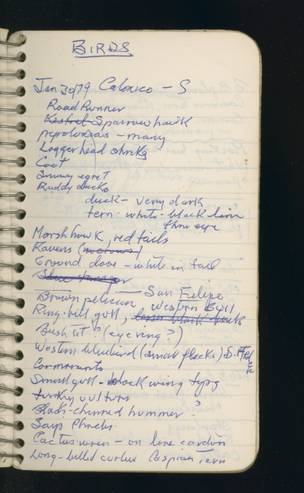 BIRDS
Jan 30 79 Calexico - S
Road Runner
Kestrel Sparrow hawk
pepoloxxais - many
Loggerhead shrike
Coot
Snowy egret
Ruddy ducks
duck - very dark
tern - white - black line
thru eye
Marsh hawk, red tails
Ravens (no crows)
Ground dove - white in tail
San Felipe
Brown pelican, Western gull
Ring-bill gull,
Bush tit? (eye ring?)
Western bluebird (small flocks) S. Felipe
Cormorants
Small gull - black wing tips
turkey vulture
Black-chinned hummer?
Says Phoebe
Cactus wren - on lone cardón
Long-billed curlew Caspian tern